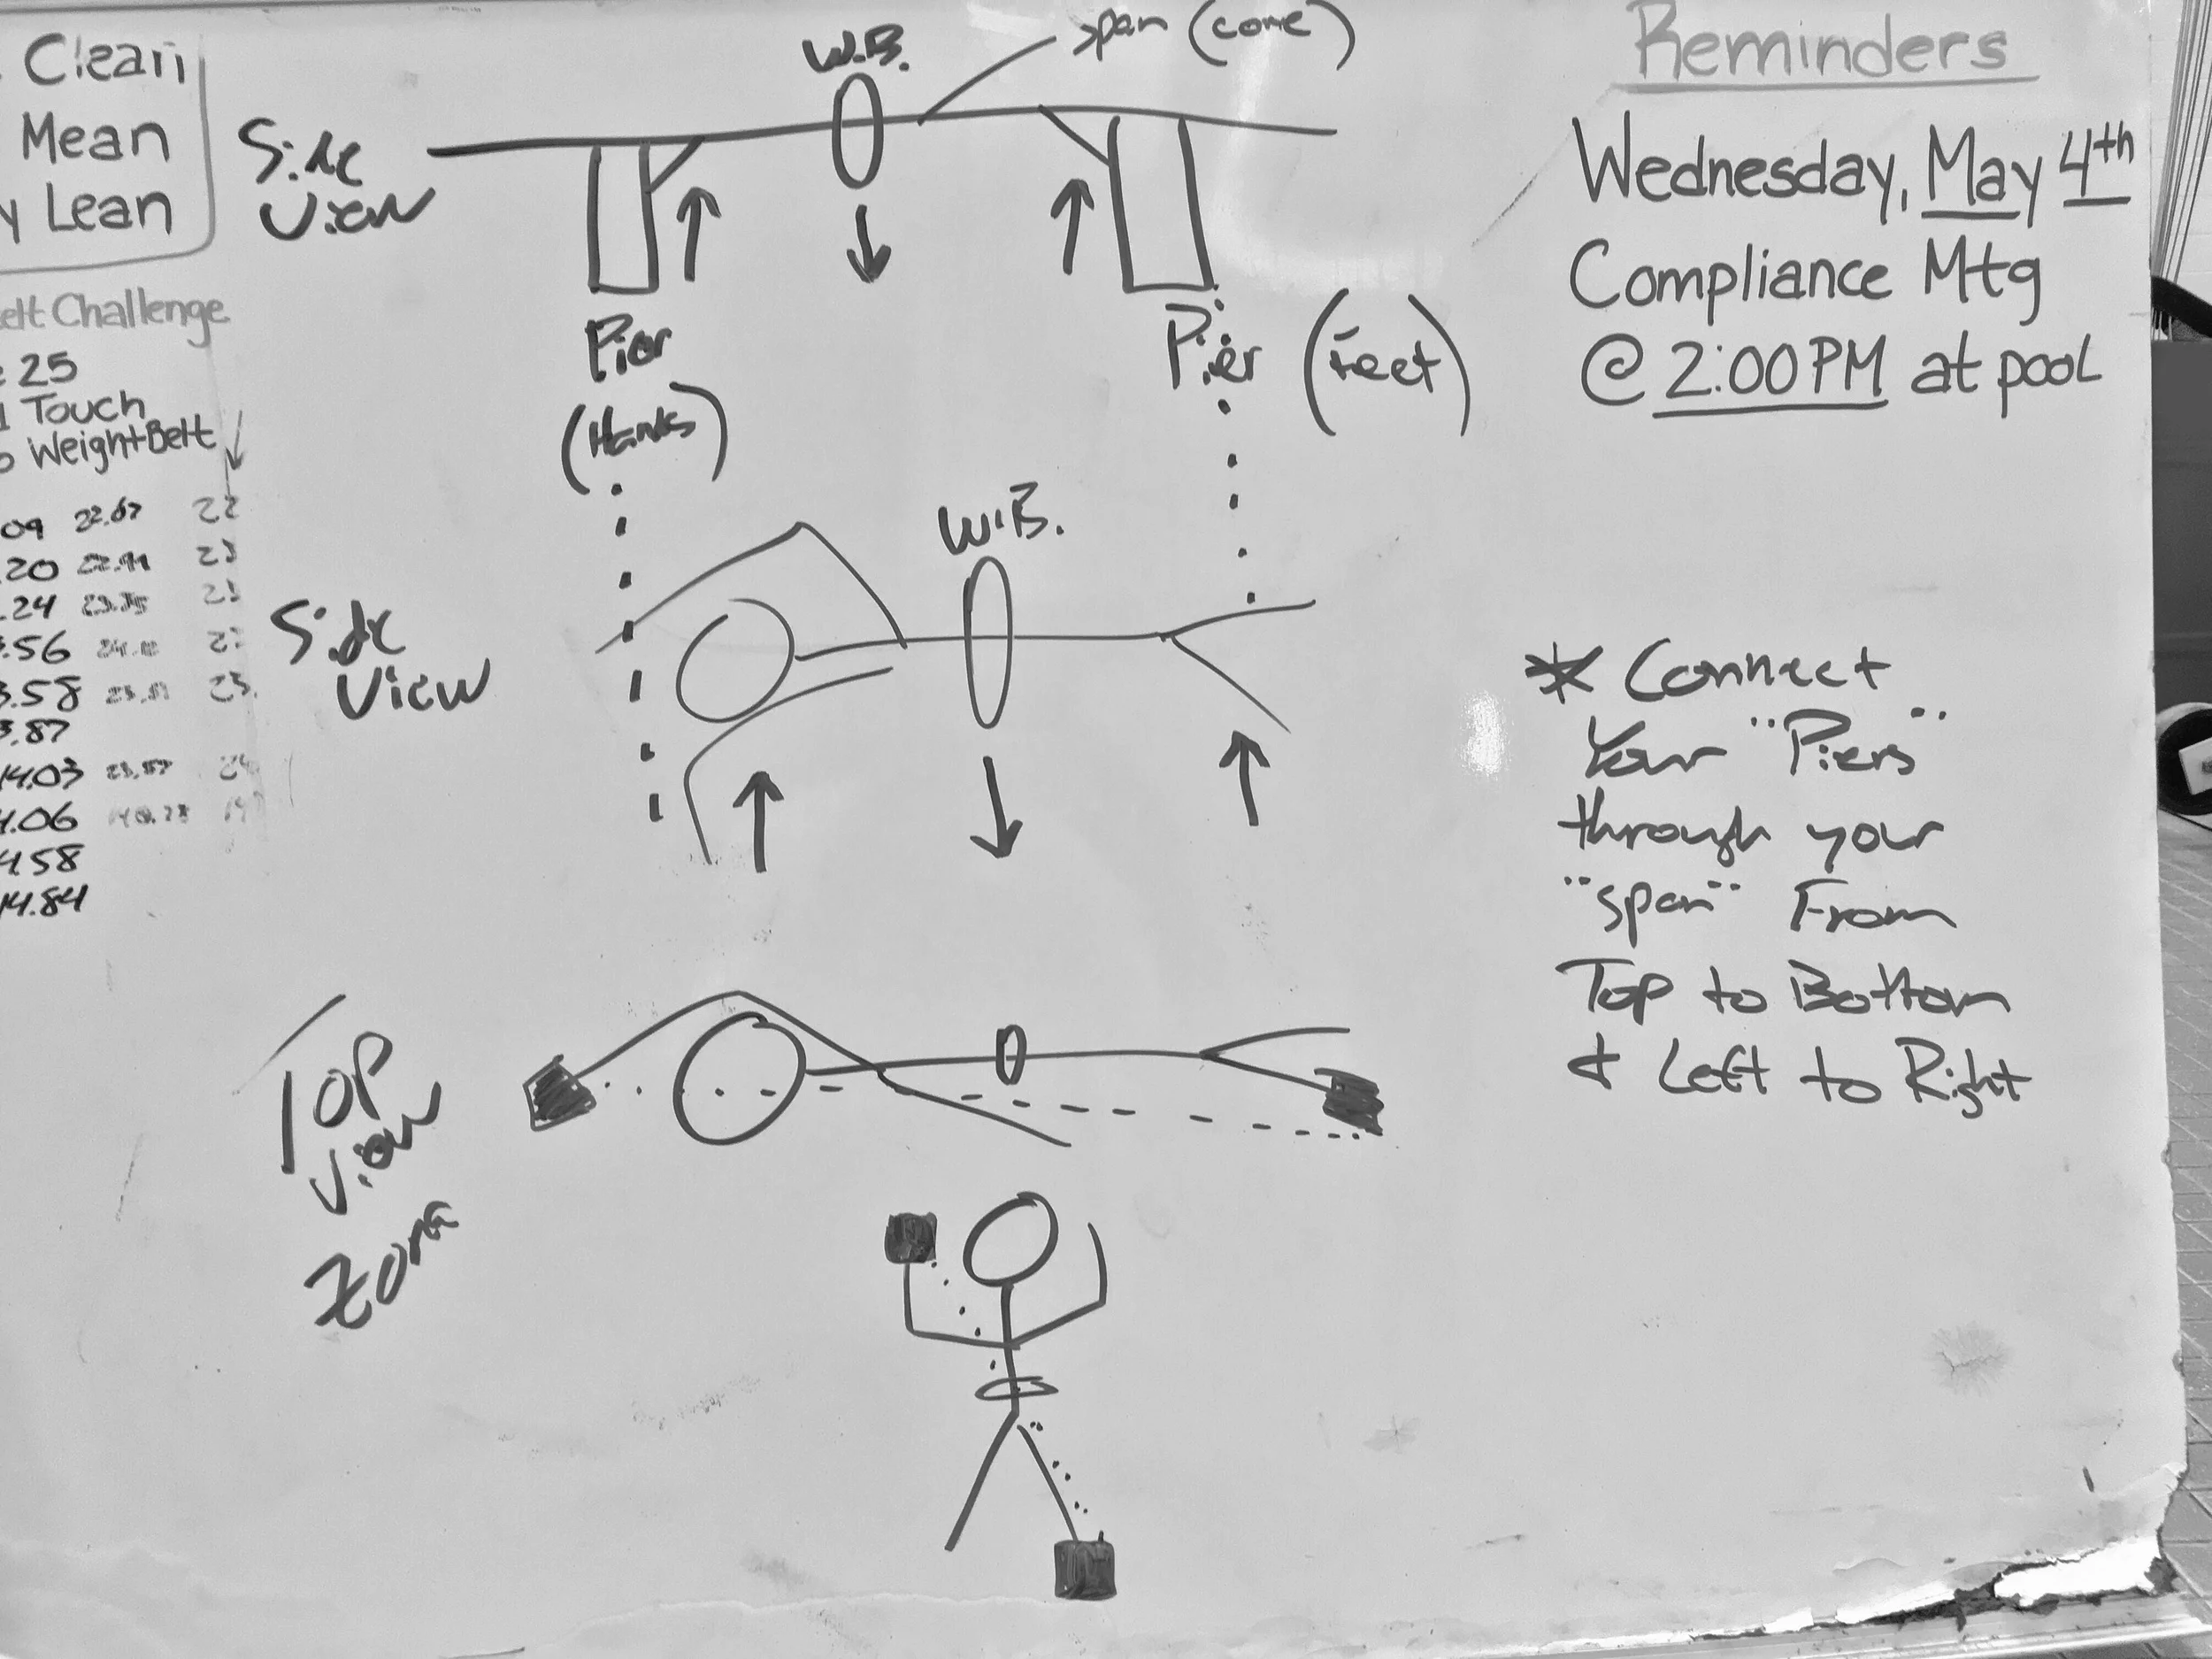 Clean
Mean
y Lean
elt Challenge
25
Touch
WeightBelt
09 22.67 22
.20 22.91 23
.24 23.35 23
.56
3.58 23.51 23.
3.87
14.03 23.57 24
4.06
4.58
14.84
span (core)
W.B.
Side
View
Pier
(Hands)
Pier (Feet)
W.B.
Side
View
Top
View
Zona
Reminders
Wednesday, May 4th
Compliance Mtg
@ 2:00 PM at pool
* Connect
Your "Piers"
through your
"span" From
Top to Bottom
+ Left to Right